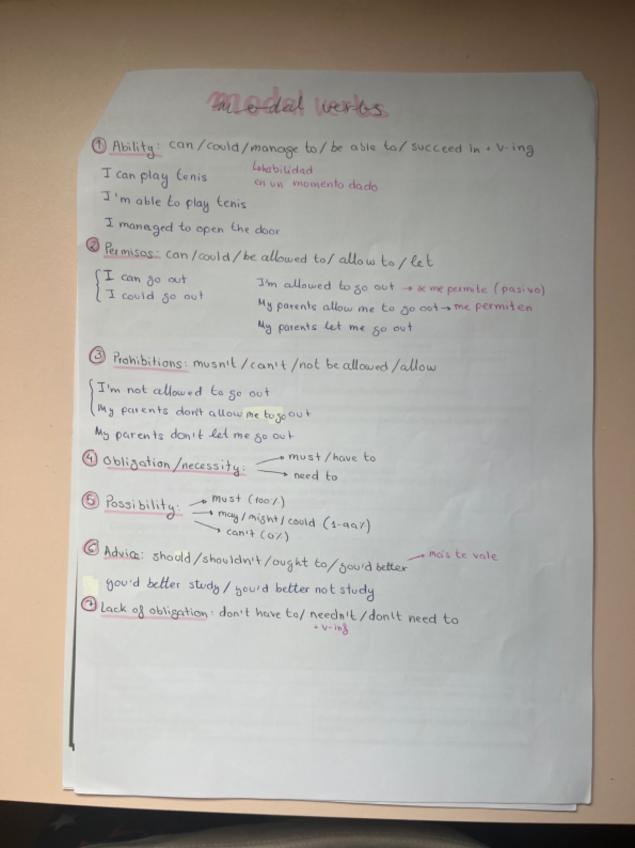 modal verbs
① Ability: can/could/manage to/be able to/succeed in + V-ing
I can play tenis
↳habilidad
en un momento dado
I'm able to play tenis
I managed to open the door
② Permisos: can/could/be allowed to/allow to/let
I can go out
I could go out
I'm allowed to go out → se me permite (pasivo)
My parents allow me to go out → me permiten
My parents let me go out
③ Prohibitions: musn't/can't/not be allowed/allow
I'm not allowed to go out
My parents don't allow me to go out
My parents don't let me go out
④ Obligation/necessity: → must/have to
→ need to
⑤ Possibility: → must (100%)
→ may/might/could (1-99%)
→ can't (0%)
⑥ Advice: should/shouldn't/ought to/you'd better → mais te vale
you'd better study/you'd better not study
⑦ Lack of obligation: don't have to/needn't/don't need to
+ V-ing